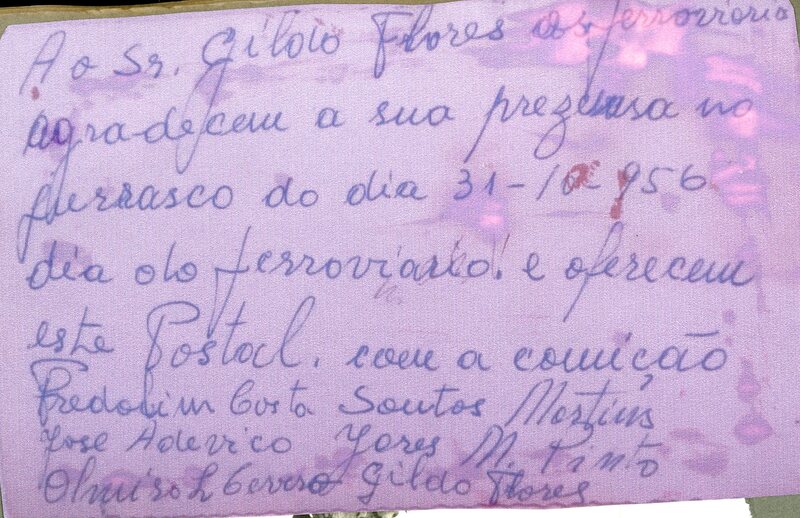 Ao Sr. Gildo Flores os ferroviario
agradecem a sua prezensa no
churrasco do dia 31-10-956
dia do ferroviario. e oferecem
este Postal. com a comição
Fredolim Costa Santos Martins
Jose Aderico Jores M. Pinto
Olmiro L Gildo Flores